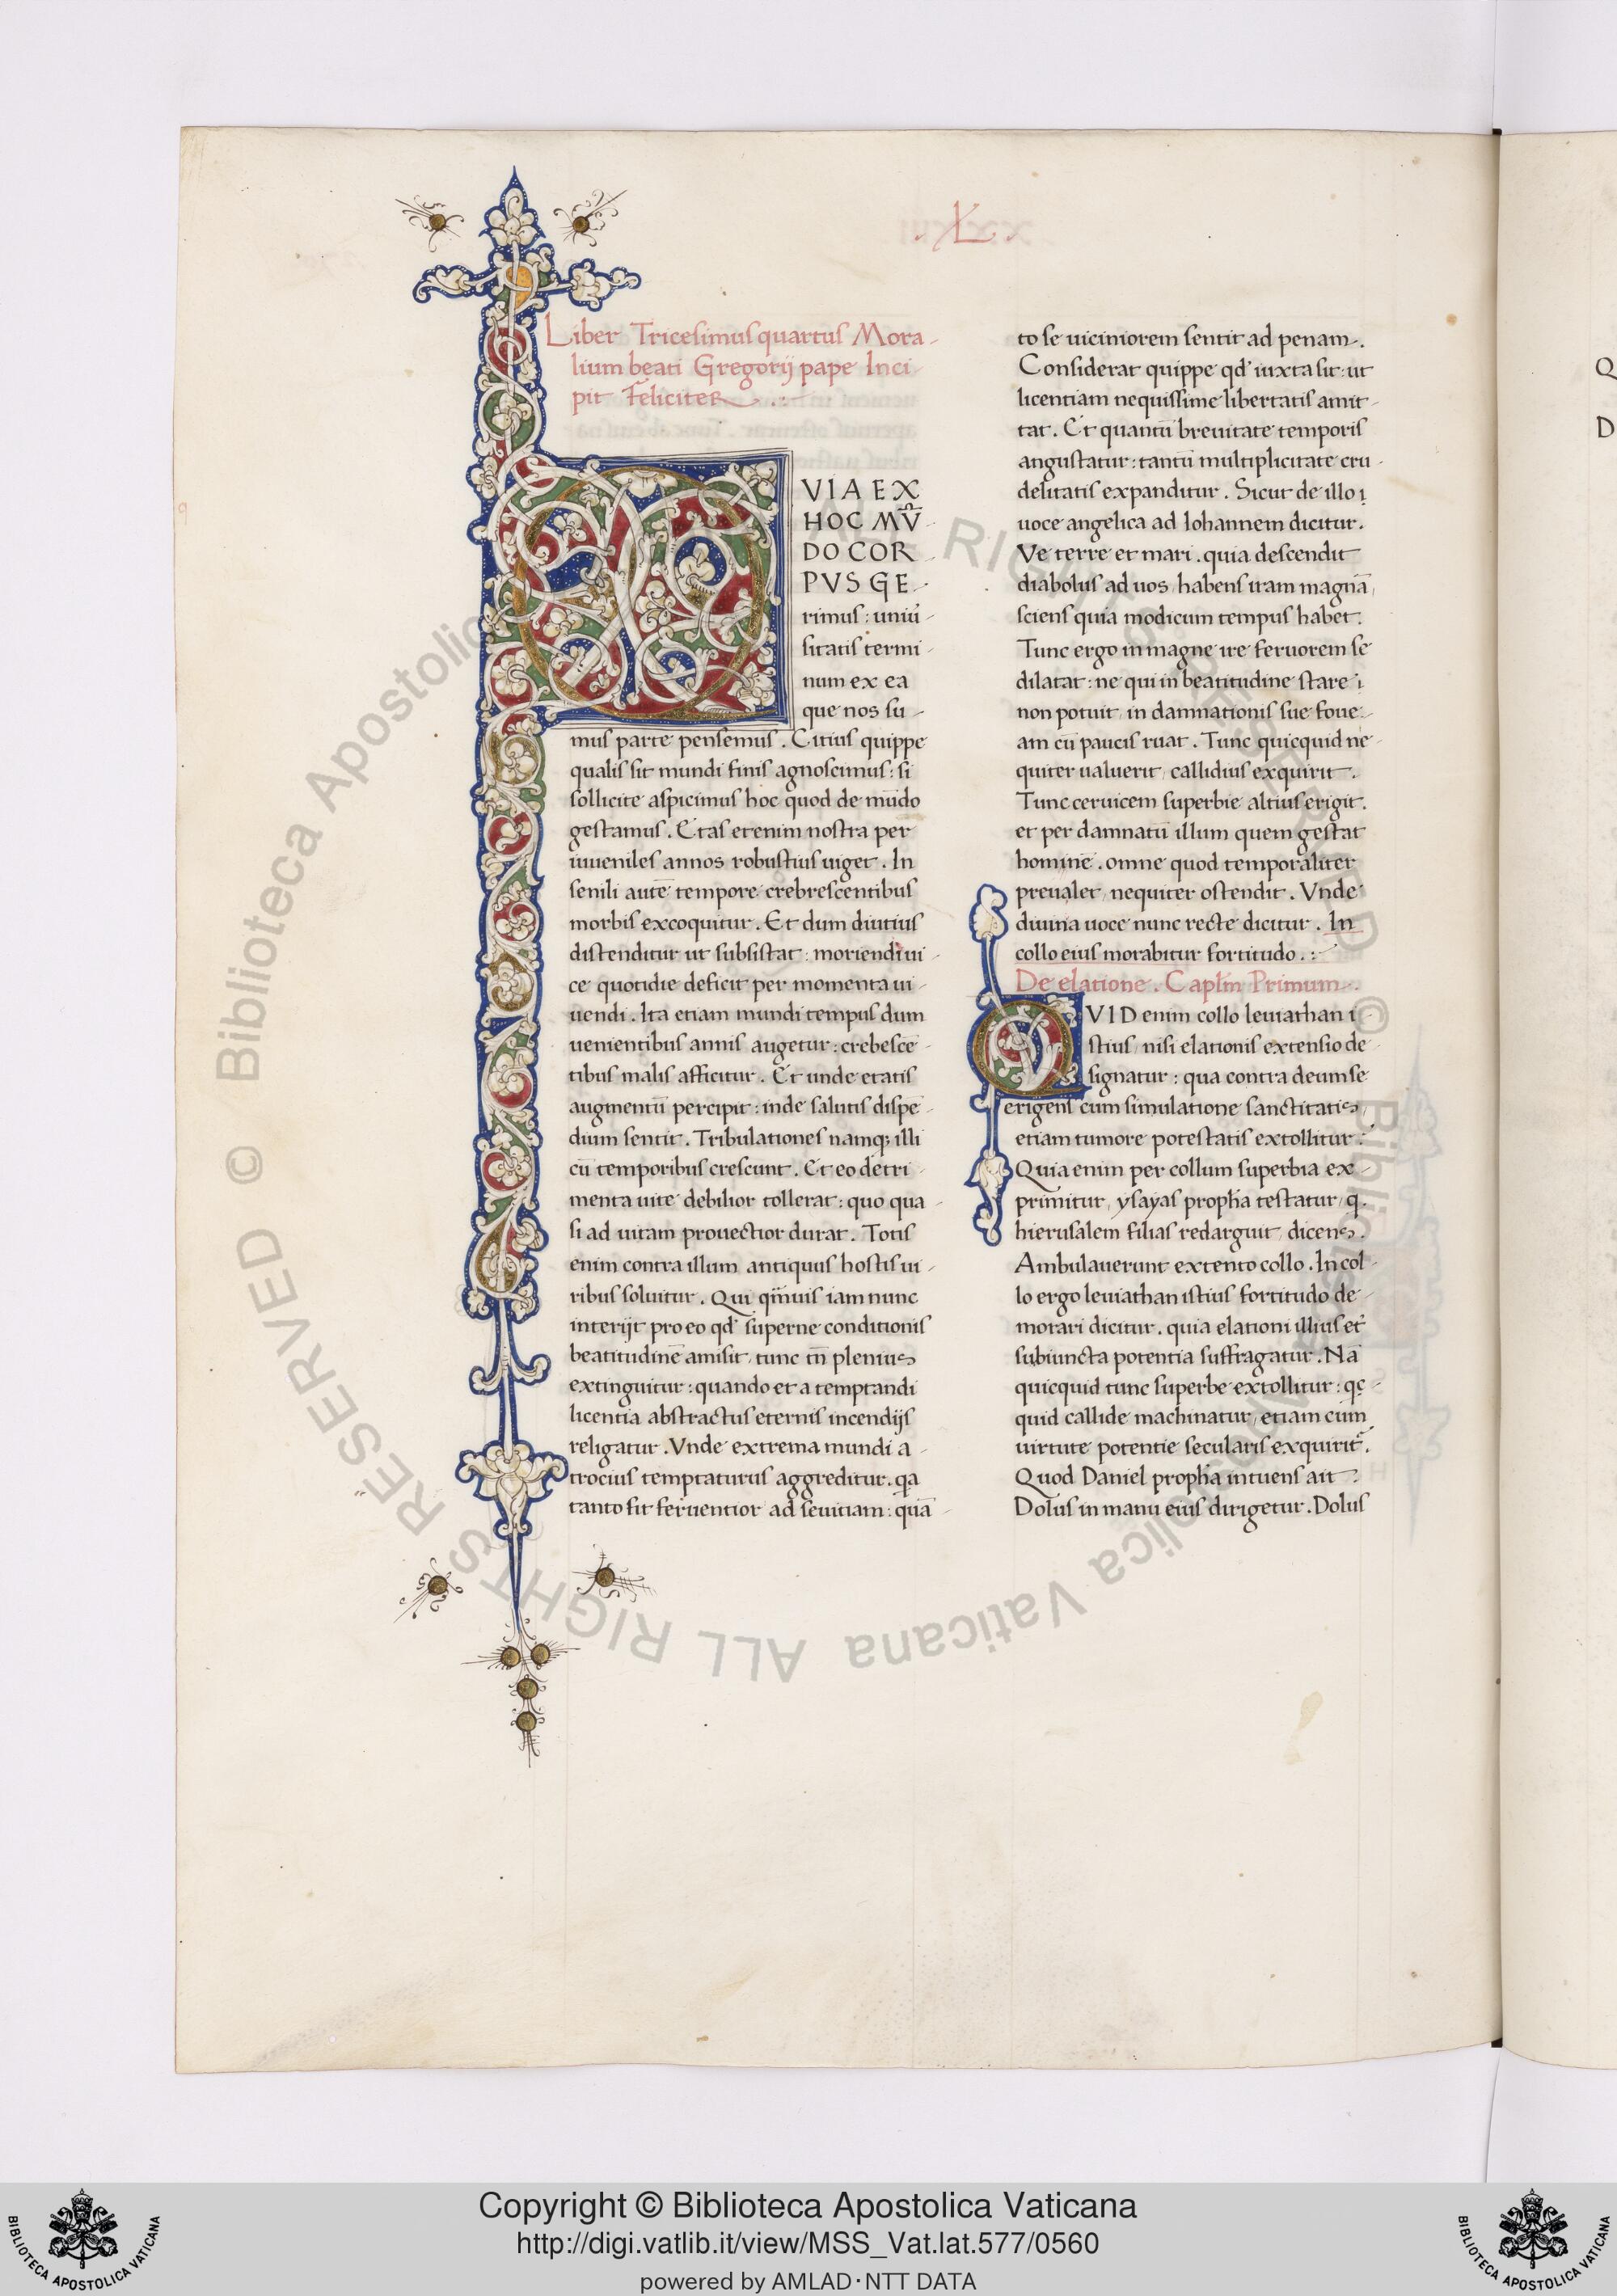 . L .
Liber Tricesimusquartus Mora-
lium beati Gregorij pape Inci-
pit Feliciter
VIA EX
HOC MŪ-
DO COR-
PVS GE-
rimus : uniu̅-
sitatis termi-
num ex ea
que nos su-
mus parte pensemus . Citius quippe
qualis sit mundi finis agnoscimus : si
sollicite aspicimus hoc quod de mūdo
gestamus . Etas etenim nostra per
iuueniles annos robustius uiget . In
senili autē tempore crebrescentibus
morbis excoquitur . Et dum diutius
distenditur ut subsistat : moriendi ui-
ce quotidie deficit per momenta ui-
uendi . Ita etiam mundi tempus dum
uenientibus annis augetur : crebesce-
tibus malis afficitur . Et unde etatis
augmentū percipit : inde salutis dispē-
dium sentit . Tribulationes namq; illi
cū temporibus crescunt . Et eo detri-
menta uite debilior tollerat : quo qua-
si ad uitam prouectior durat . Totis
enim contra illum antiquus hostis ui-
ribus soluitur . Qui q̄muis iam nunc
interijt pro eo qd̓ superne conditionis
beatitudinē amisit, tunc tn̄ plenius
extinguitur : quando et a temptandi
licentia abstractus eternis incendijs
religatur . Vnde extrema mundi a-
trocius temptaturus aggreditur . qa
tanto fit feruentior ad seuitiam : quā-
to se uiciniorem sentit ad penam .
Considerat quippe qd̓ iuxta sit : ut
licentiam nequissime libertatis amit-
tat . Et quantū breuitate temporis
angustatur : tantū multiplicitate cru-
delitatis expanditur . Sicut de illo ı
uoce angelica ad Iohannem dicitur .
Ve terre et mari . quia descendit
diabolus ad uos, habens iram magnā,
sciens quia modicum tempus habet .
Tunc ergo in magne ire feruorem se
dilatat : ne qui in beatitudine stare ı
non potuit, in damnationis sue foue-
am cū paucis ruat . Tunc quicquid ne-
quiter ualuerit, callidius exquirit .
Tunc ceruicem superbie altius erigit .
et per damnatū illum quem gestat
hominē . omne quod temporaliter
preualet, nequiter ostendit . Vnde
diuina uoce nunc recte dicitur . In
collo eius morabitur fortitudo .
De elatione . Caplm̄ Primum .
VID enim collo leuiathan i-
stius, nisi elationis extensio de-
signatur : qua contra deum se
erigens cum simulatione sanctitatis,
etiam tumore potestatis extollitur .
Quia enim per collum superbia ex-
primitur, ysayas prop̄ha testatur, q.
hierusalem filias redarguit, dicens .
Ambulauerunt extento collo . In col-
lo ergo leuiathan istius fortitudo de-
morari dicitur . quia elationi illius et̓
subiuncta potentia suffragatur . Nā
quicquid tunc superbe extollitur : qc-
quid callide machinatur, etiam cum
uirtute potentie secularis exquirit̃ .
Quod Daniel prop̄ha intuens ait .
Dolus in manu eius dirigetur . Dolus
Q
D
© Biblioteca Apostolica Vaticana ALL RIGHTS RESERVED
Copyright © Biblioteca Apostolica Vaticana
http://digi.vatlib.it/view/MSS_Vat.lat.577/0560
powered by AMLAD·NTT DATA
BIBLIOTECA APOSTOLICA VATICANA
BIBLIOTECA APOSTOLICA VATICANA